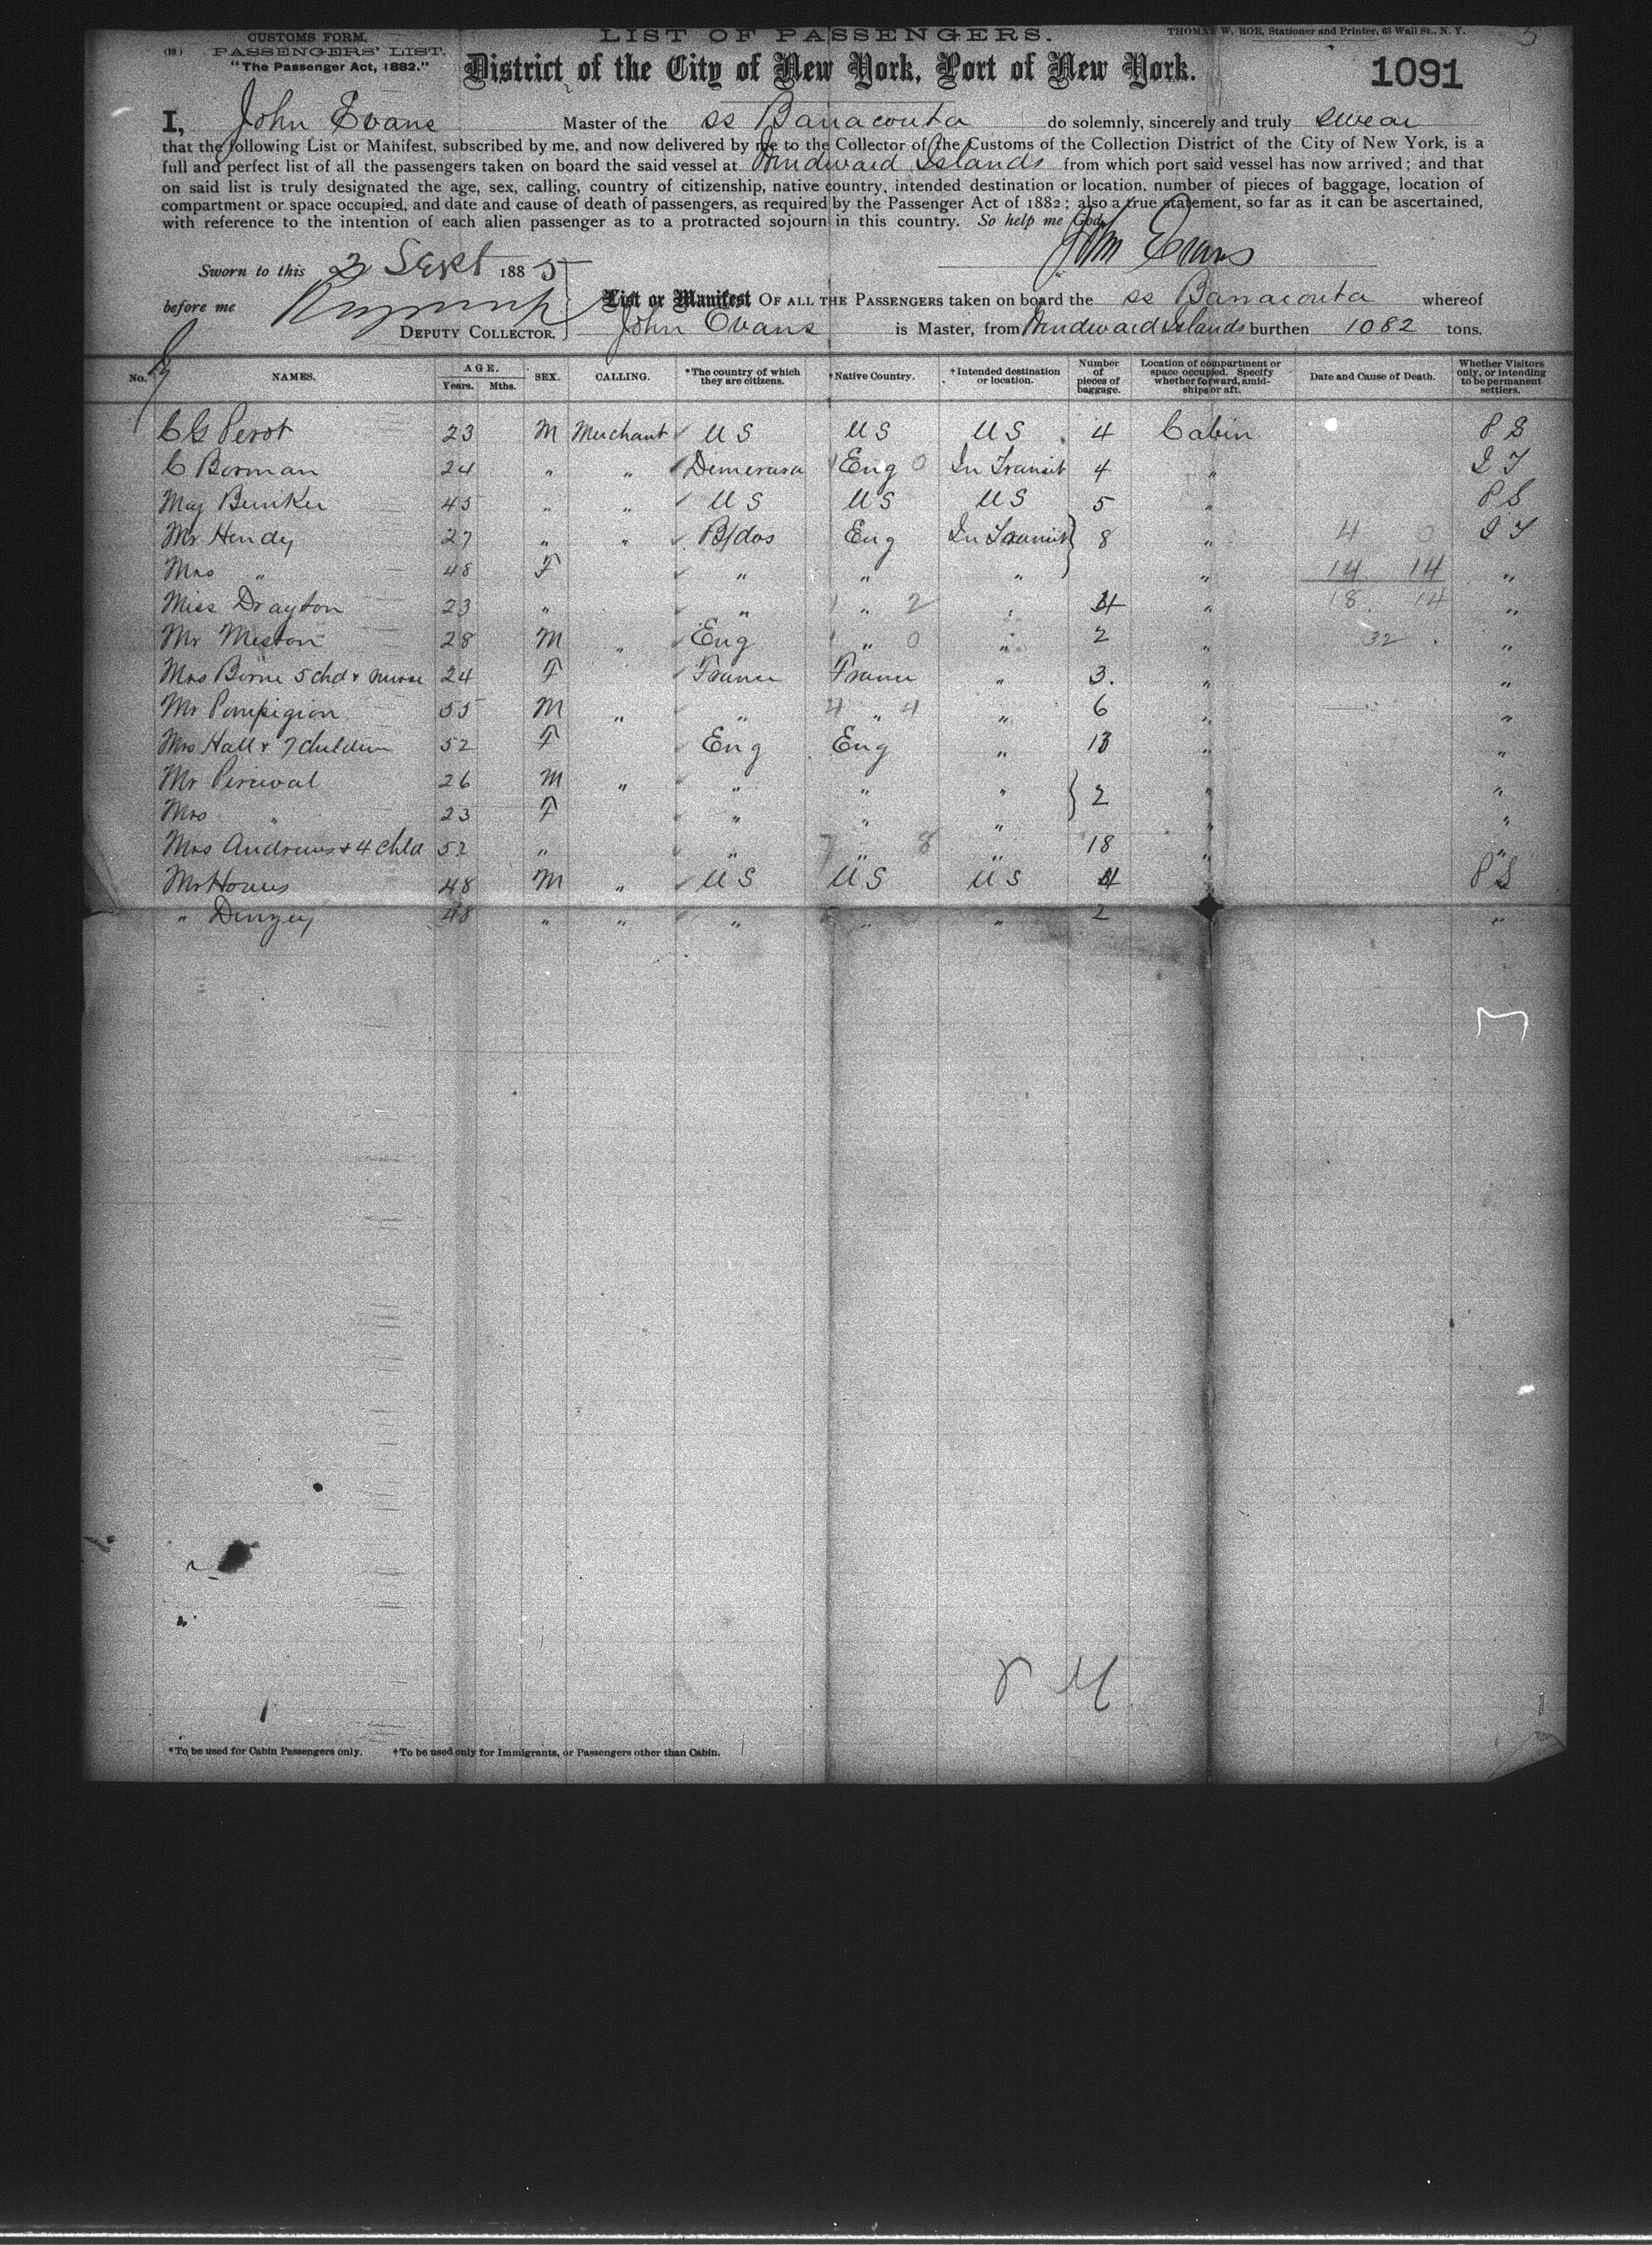 CUSTOMS FORM.
(18) PASSENGERS' LIST.
"The Passenger Act, 1882."
LIST OF PASSENGERS.
THOMAS W. ROE, Stationer and Printer, 63 Wall St., N. Y.
District of the City of New York, Port of New York.
1091
I, John Evans Master of the ss Barracouta do solemnly, sincerely and truly swear
that the following List or Manifest, subscribed by me, and now delivered by me to the Collector of the Customs of the Collection District of the City of New York, is a
full and perfect list of all the passengers taken on board the said vessel at Windward Islands from which port said vessel has now arrived; and that
on said list is truly designated the age, sex, calling, country of citizenship, native country, intended destination or location, number of pieces of baggage, location of
compartment or space occupied, and date and cause of death of passengers, as required by the Passenger Act of 1882; also a true statement, so far as it can be ascertained,
with reference to the intention of each alien passenger as to a protracted sojourn in this country. So help me God.
John Evans
Sworn to this 2 Sept 1885
before me
DEPUTY COLLECTOR.
List or Manifest OF ALL THE PASSENGERS taken on board the ss Barracouta whereof
John Evans is Master, from Windward Islands burthen 1082 tons.
No. NAMES. AGE. Years. Mths. SEX. CALLING. *The country of which they are citizens. †Native Country. †Intended destination or location. Number of pieces of baggage. Location of compartment or space occupied. Specify whether forward, amidships or aft. Date and Cause of Death. Whether Visitors only, or intending to be permanent settlers.
C G Perot 23 M Merchant U S U S U S 4 Cabin P S
C Borman 24 " " Demerara Eng 0 In Transit 4 " I T
Maj Bunker 45 " " U S U S U S 5 " P S
Mr Hendy 27 " " B/dos Eng In Transit 8 " 4 0 I T
Mrs " 48 F " " " " 14 14 "
Miss Drayton 23 " " 1 " 2 " 4 " 18 14 "
Mr Meston 28 M " Eng " 0 " 2 " 32 "
Mrs Borne 5 chd & nurse 24 F France France " 3 " "
Mr Pompigion 55 M " " 4 " 4 " 6 " "
Mrs Hall & 7 children 52 F Eng Eng " 13 " "
Mr Percival 26 M " " " " 2 " "
Mrs " 23 F " " " " "
Mrs Andrews & 4 chld 52 " " 7 " 8 " 18 " "
Mr Howes 48 M " U S U S U S 4 P S
" Dinzey 48 " " " " " 2 "
*To be used for Cabin Passengers only. †To be used only for Immigrants, or Passengers other than Cabin.